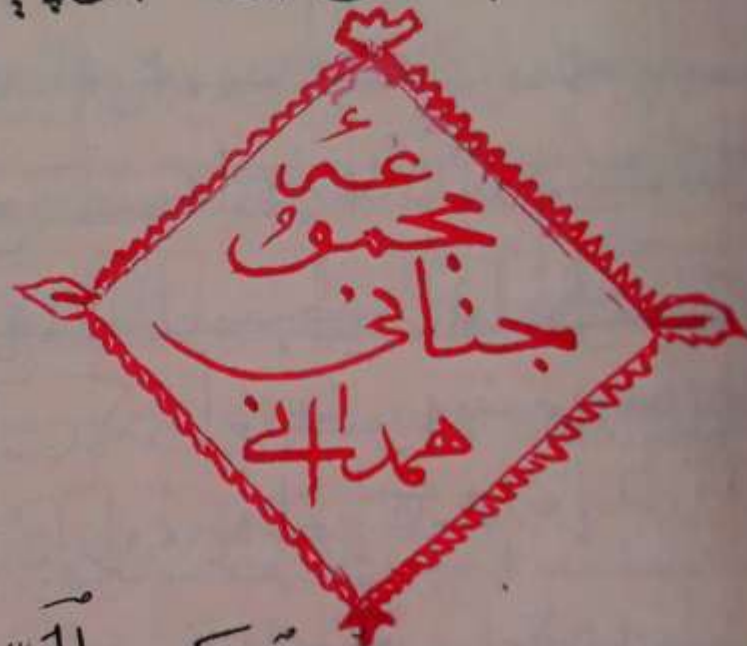 مجموعۀ
جنانی
همدانی